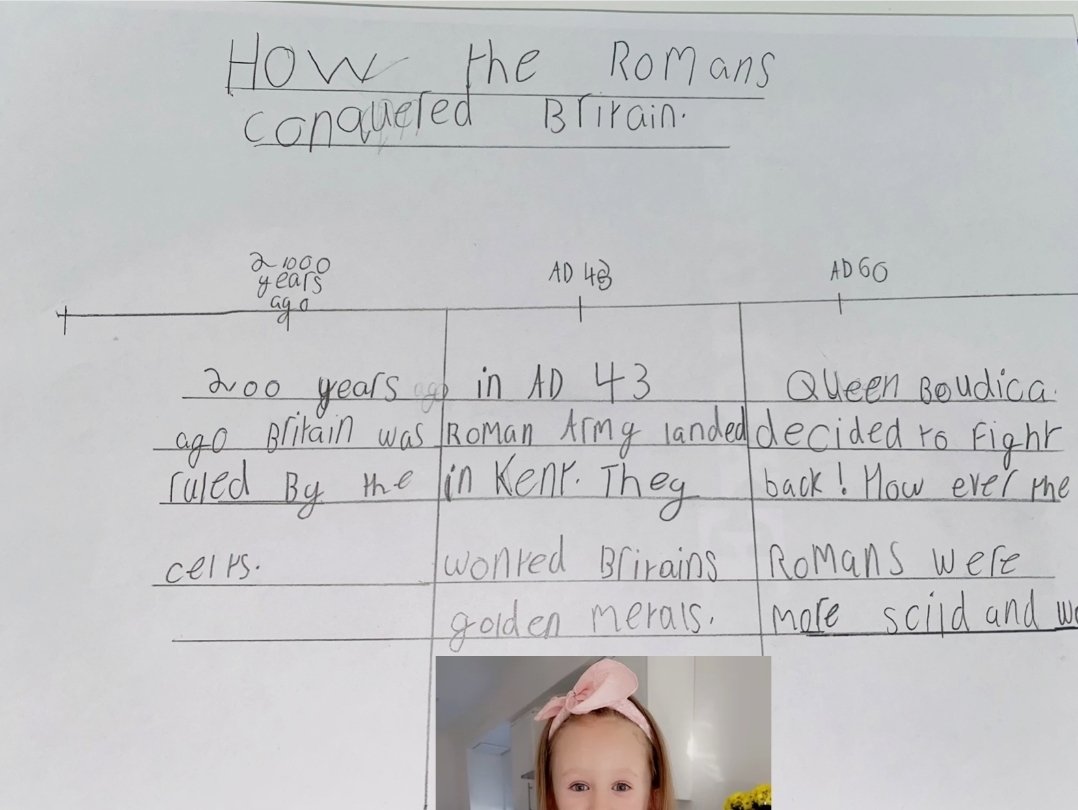 How the Romans
conquered Britain.
2 1000
years
ago
AD 43
AD 60
200 years ago
ago Britain was
ruled By the
celts.
in AD 43
Roman Army landed
in Kent. They
wonted Britains
golden metals.
Queen Boudica.
decided to Fight
back! How ever the
Romans were
more scild and